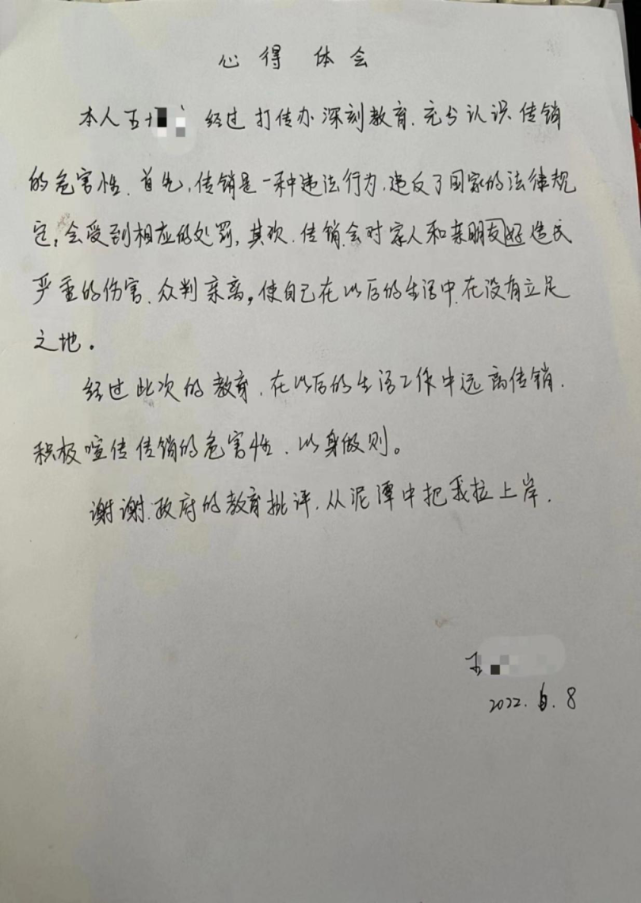 心得 体会
本人 经过打传办深刻教育.充分认识传销
的危害性.首先,传销是一种违法行为,违反了国家的法律规
定,会受到相应的处罚,其次.传销会对家人和亲朋友好造成
严重的伤害.众判亲离,使自己在以后的生活中.在没有立足
之地。
经过此次的教育.在以后的生活工作中远离传销.
积极喧传传销的危害性.以身做则。
谢谢.政府的教育批评.从泥潭中把我拉上岸.
2022.6.8